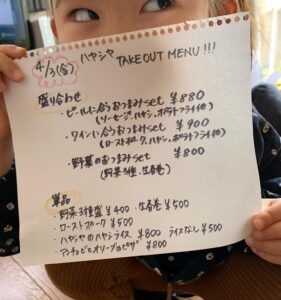 4/3(金)
ハヤシヤ TAKE OUT MENU!!!
盛り合わせ
・ビールに合うおつまみset ¥880
(ソーセージ、ハヤシ、ポテトフライ他)
・ワインに合うおつまみset ¥900
(ローストポーク、ハヤシ、ポテトフライ他)
・野菜のおつまみset ¥800
(野菜3種、生春巻)
単品
・野菜3種盛 ¥400 ・生春巻 ¥500
・ローストポーク ¥500
・ハヤシヤのハヤシライス ¥800 ライスなし ¥500
・アンチョビとオリーブのピザ ¥800